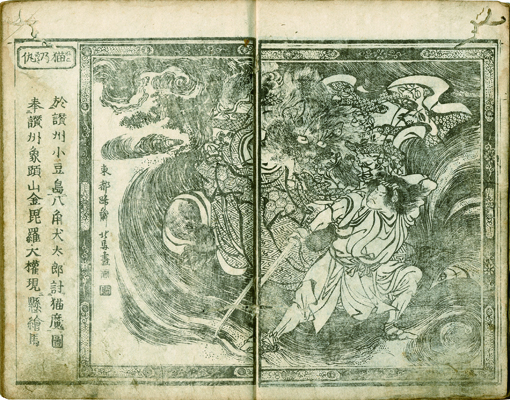 東都蹄齋北馬畫
於讃州小豆島八角犬太郎討猫魔圖
奉讃州象頭山金毘羅大權現懸繪馬